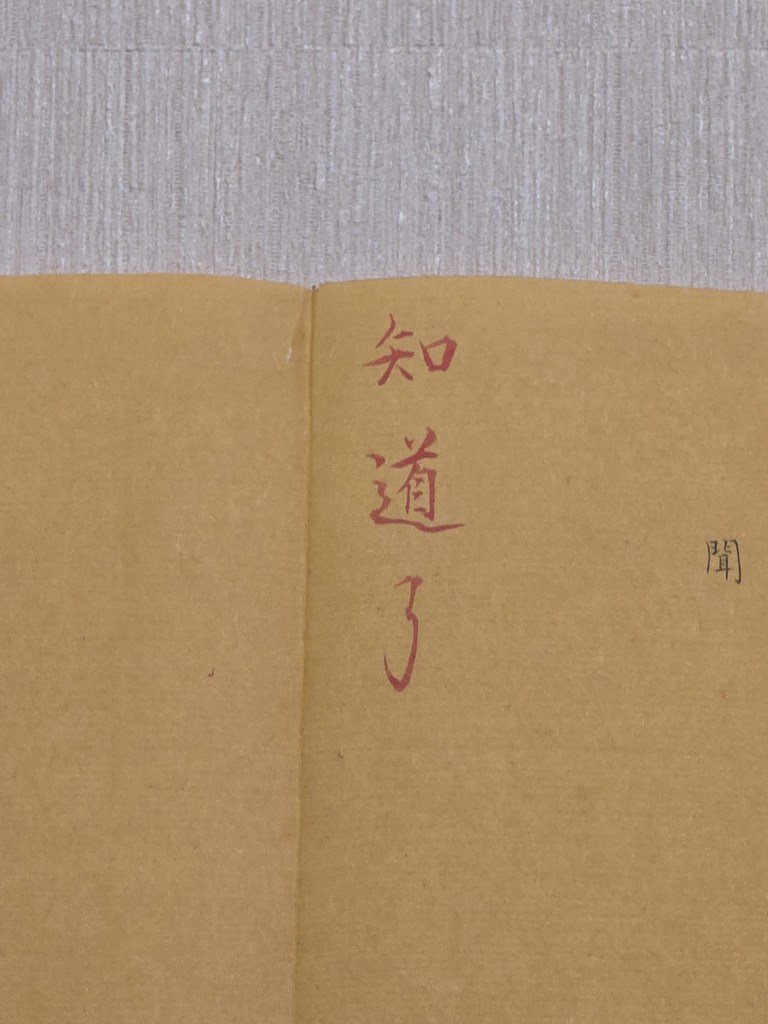 聞
知道了